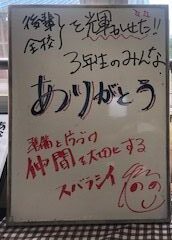 後輩
全校
を輝かせた!!
3年生のみんな
ありがとう
準備と片づけ
仲間を大切にする
スバラシイ